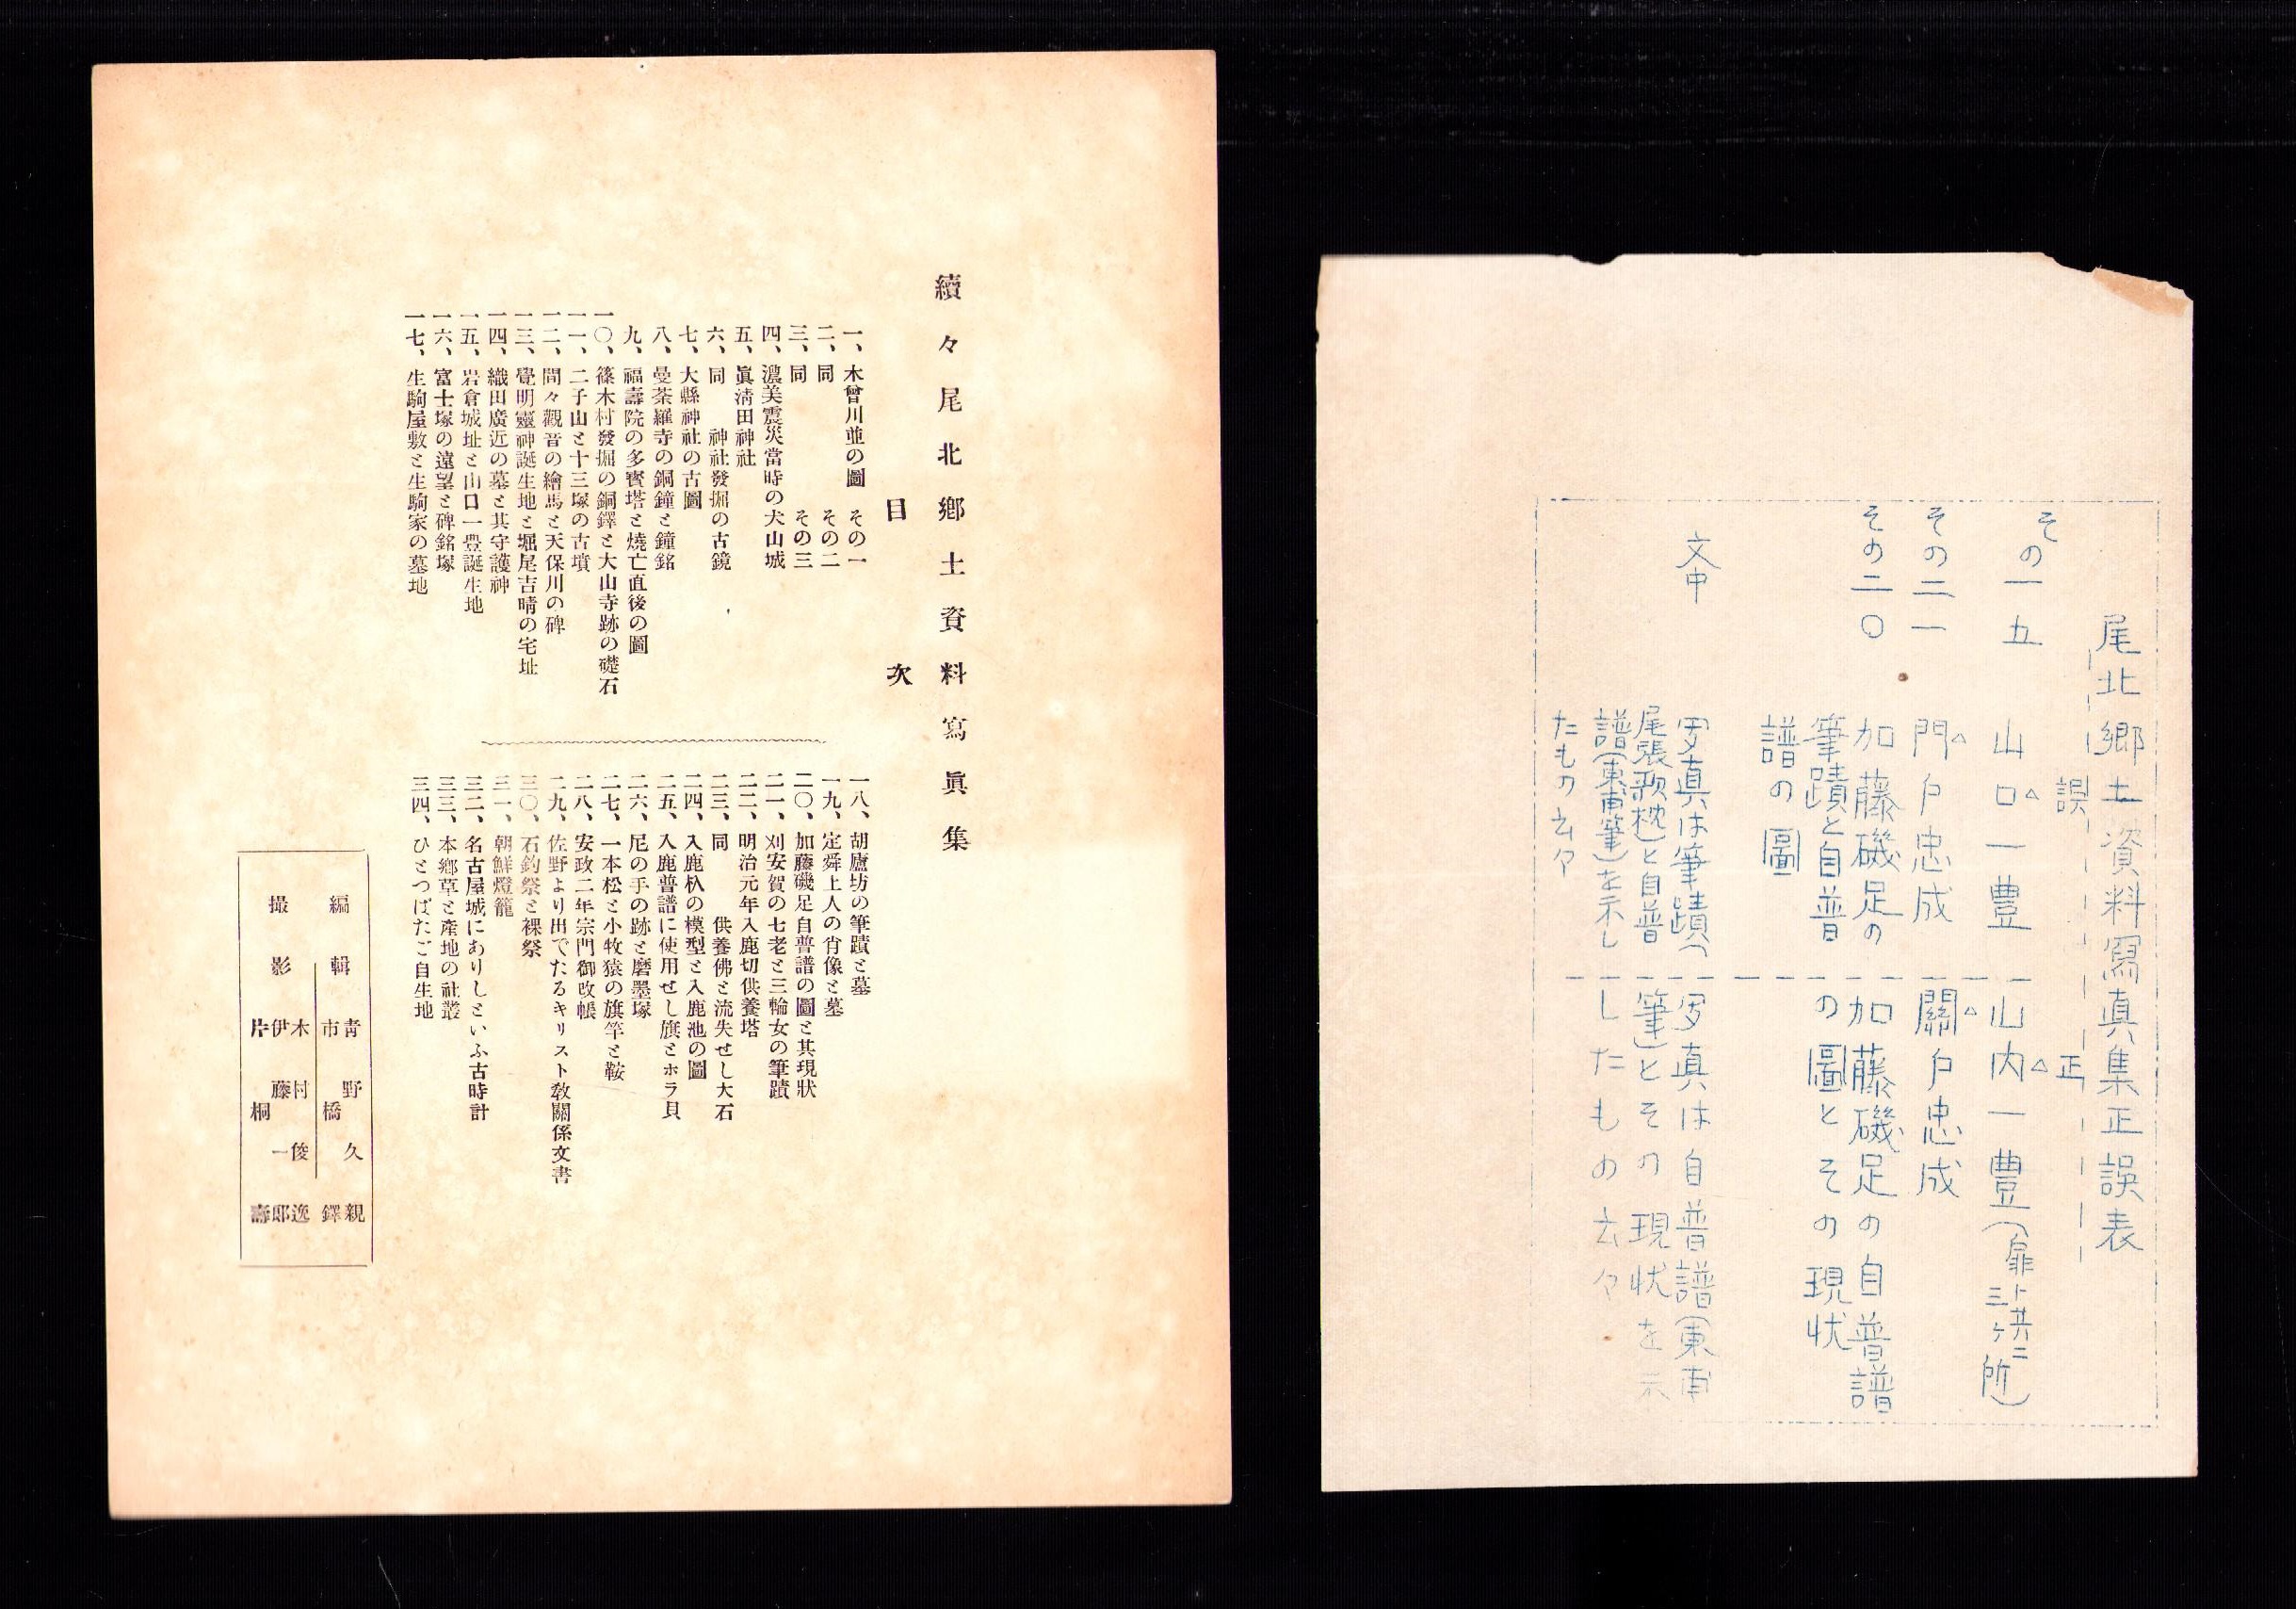 續々尾北郷土資料寫眞集
目次
一、木曾川並の圖 その一
二、同 その二
三、同 その三
四、濃美震災當時の犬山城
五、眞淸田神社
六、同 神社發掘の古鏡
七、大縣神社の古圖
八、曼荼羅寺の銅鐘と鐘銘
九、福壽院の多寳塔と燒亡直後の圖
一〇、篠木村發掘の銅鐸と大山寺跡の礎石
一一、二子山と十三塚の古墳
一二、間々觀音の繪馬と天保川の碑
一三、覺明靈神誕生地と堀尾吉晴の宅址
一四、織田廣近の墓と其守護神
一五、岩倉城址と山口一豊誕生地
一六、富士塚の遠望と碑銘塚
一七、生駒屋敷と生駒家の墓地
一八、胡廬坊の筆蹟と墓
一九、定舜上人の肖像と墓
二〇、加藤磯足自普譜の圖と其現狀
二一、刈安賀の七老と三輪女の筆蹟
二二、明治元年入鹿切供養塔
二三、同 供養佛と流失せし大石
二四、入鹿杁の模型と入鹿池の圖
二五、入鹿普譜に使用せし旗とホラ貝
二六、尼の手の跡と磨墨塚
二七、一本松と小牧猿の旗竿と鞍
二八、安政二年宗門御改帳
二九、佐野より出でたるキリスト敎關係文書
三〇、石釣祭と裸祭
三一、朝鮮燈籠
三二、名古屋城にありしといふ古時計
三三、本郷草と產地の社叢
三四、ひとつばたご自生地
編輯 青野久親
市橋鐸
撮影 木村俊逸
伊藤一郎
片桐壽
尾北郷土資料寫真集正誤表
誤 正
その一五 山口一豊 山内一豊(扉ト共ニ三ヶ所)
その二一 門戸忠成 關戸忠成
その二〇 加藤磯足の筆蹟と自普譜の圖 加藤磯足の自普譜の圖とその現状
文中 写真は筆蹟(尾張歌枕)と自普譜(東甫筆)を示したもの云々 写真は自普譜(東甫筆)とその現状を示したもの云々